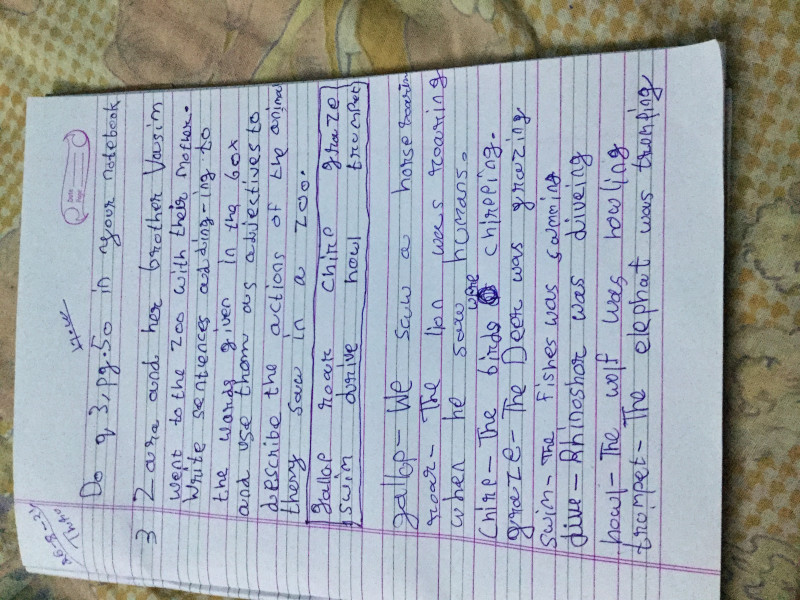 26-9-24
Date
Page
H.w
Do q 3, pg.50 in nyour notebook
3 Zaira and her brother Vasim
went to the zoo with their mother.
Write sentences adding -ing to
the words given in the box
and use them as adjectives to
describe the actions of the animal
they saw in a zoo.
gallop roar chirp graze
swim drive howl trumpet
gallop - We saw a horse roaring
roar - The lion was roaring
when he saw humans.
chirp - The birds were chireping.
graze - The Deer was grazing
swim - The Fishes was swmming
dive - Rhinoshor was diveing
howl - The wolf was howling
trumpet - The elephat was trumping